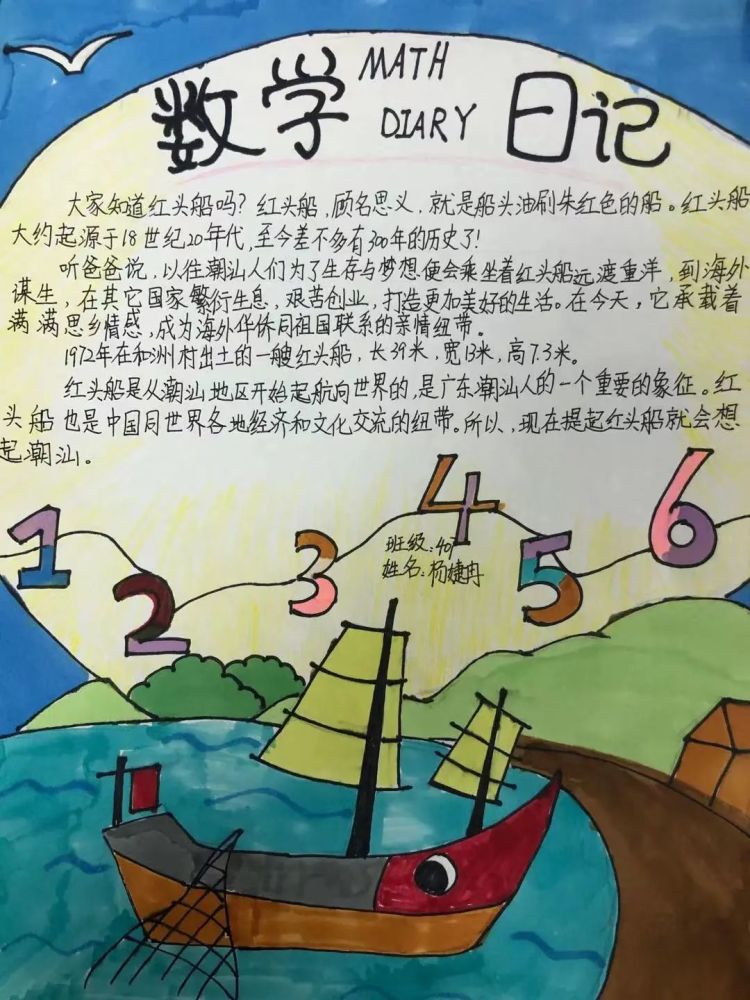 数学 MATH DIARY 日记
大家知道红头船吗？红头船，顾名思义，就是船头油刷朱红色的船。红头船
大约起源于18世纪20年代，至今差不多有300年的历史了！
听爸爸说，以往潮汕人们为了生存与梦想便会乘坐着红头船远渡重洋，到海外
谋生，在其它国家繁衍生息，艰苦创业，打造更加美好的生活。在今天，它承载着
满满思乡情感，成为海外华侨同祖国联系的亲情纽带。
1972年在和洲村出土的一艘红头船，长39米，宽13米，高7.3米。
红头船是从潮汕地区开始起航向世界的，是广东潮汕人的一个重要的象征。红
头船也是中国同世界各地经济和文化交流的纽带。所以，现在提起红头船就会想
起潮汕。
1 2 3 4 5 6
班级：407
姓名：杨婕冉